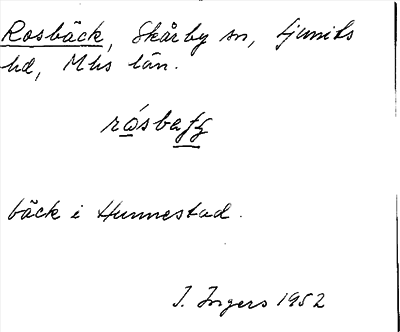 Rosbäck, Skårby sn, Ljunits
hd, Mhs län.
bäck i Hunnestad.
I. Ingers 1952